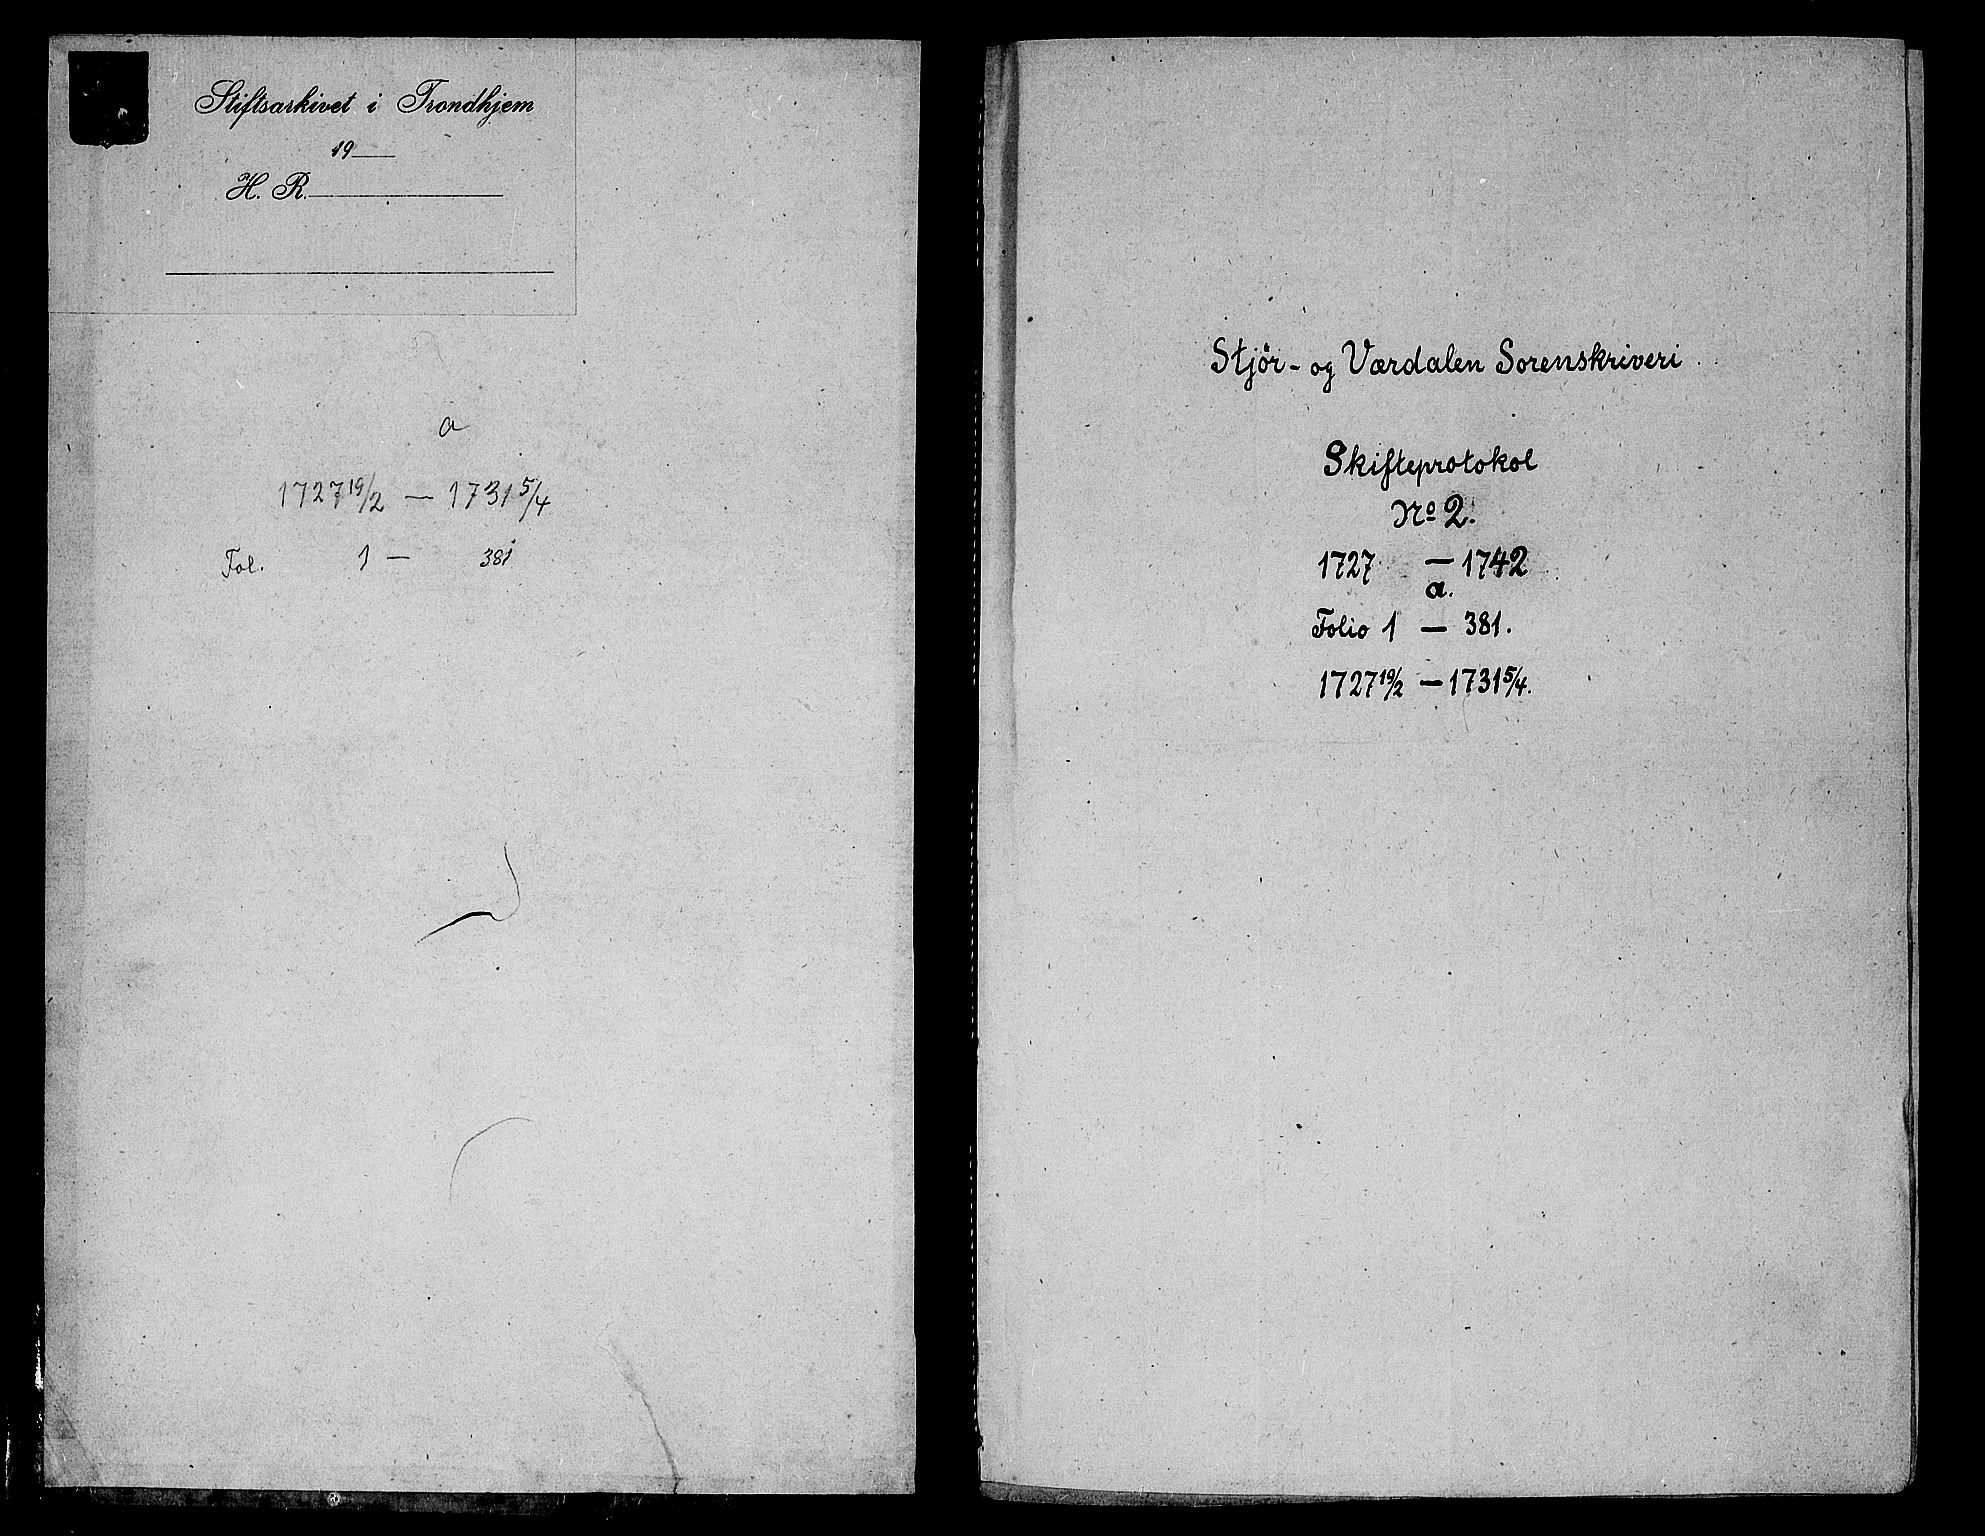 Stiftsarkivet i Trondhjem
19
H. R.
a
1727 19/2 — 1731 5/4
Fol. 1 — 381
Stjör- og Værdalen Sorenskriveri
Skifteprotokol
No 2.
1727 — 1742
a.
Folio 1 — 381.
1727 19/2 — 1731 5/4.